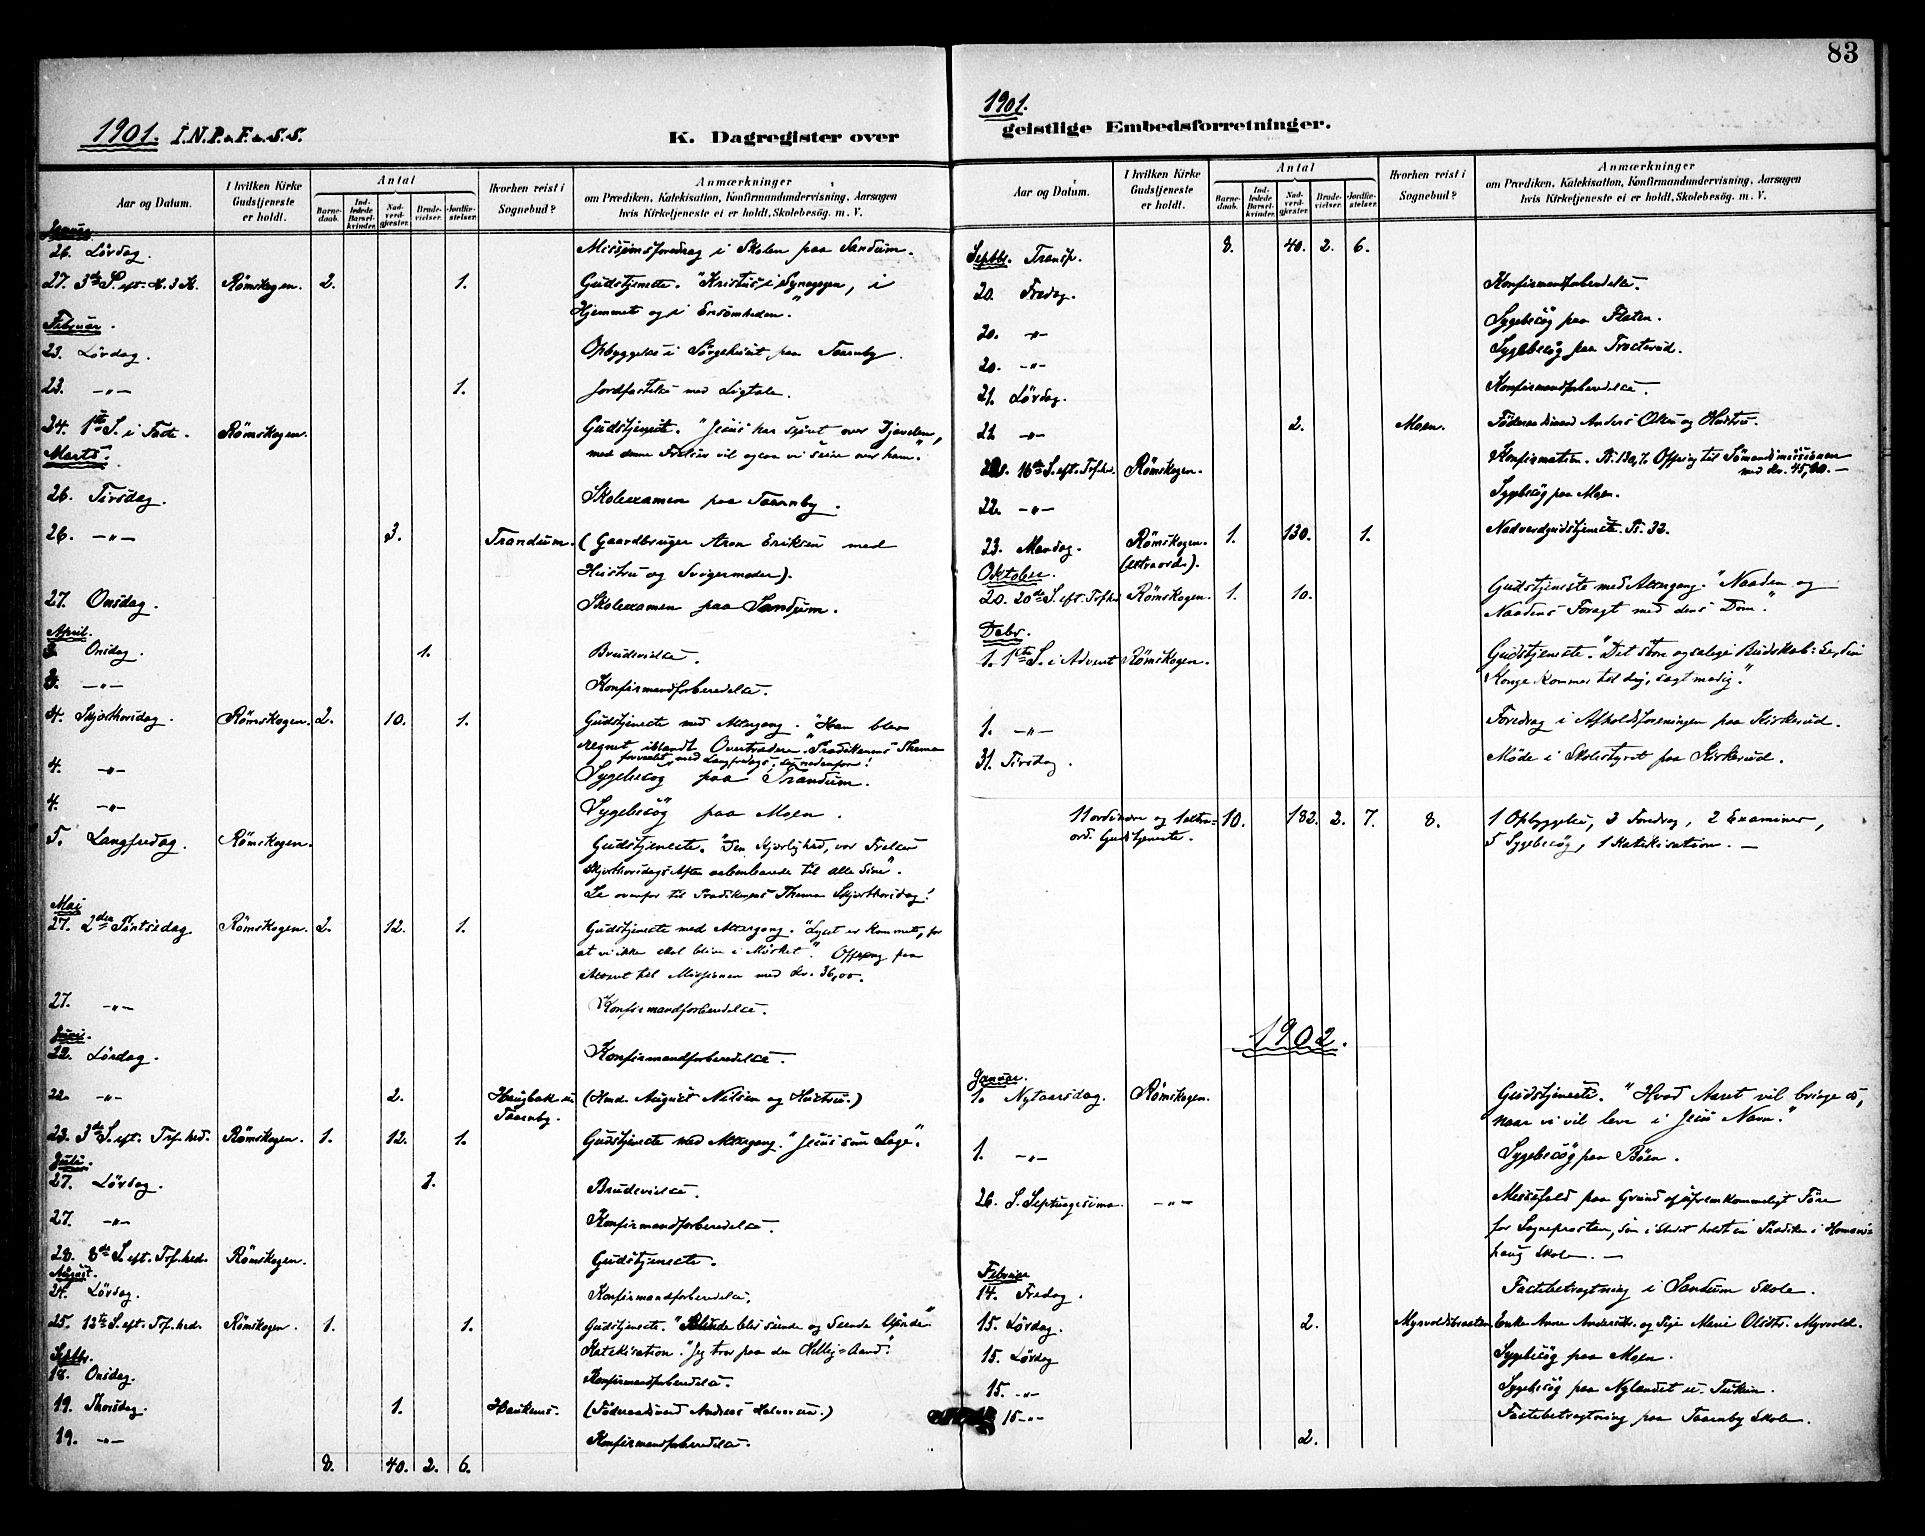 83
1901. I.N.P.F.S.S.
K. Dagregister over
Aar og Datum.
I hvilken Kirke Gudstjeneste er holdt.
Antal
Barnedaab.
Indledede Barselkvinder.
Nadverdgjester.
Brudevielser.
Jordfæstelser.
Hvorhen reist i Sognebud?
Anmærkninger
om Prædiken, Katekisation, Konfirmandundervisning, Aarsagen
hvis Kirketjeneste ei er holdt, Skolebesøg. m. V.
Januar
26. Lördag. Missionsforedrag i Skolen paa Sandum.
27. 3die S. eft. H. 3 K. Römskogen. 2. 1. Gudstjeneste. "Kristus i Synagogen, i
Hjemmet og i Ensomheden."
Februar.
23. Lördag. Opbyggelse i Sörgehuset paa Taarnby.
23. -"- 1. Jordfæstelse med Ligtale.
24. 1ste S. i Faste. Römskogen. Gudstjeneste. "Jesus har seiret over Djævelen,
med denne Frelser vil ogsaa vi seire over ham."
Marts.
26. Tirsdag. Skoleexamen paa Taarnby.
26. -"- 3. Trandum. (Gaardbruger Aron Eriksen med
Hustru og Svigermoder).
27. Onsdag. Skoleexamen paa Sandum.
April.
3. Onsdag. 1. Brudevielse.
3. -"- Konfirmandforberedelse.
4. Skjærthorsdag. Römskogen. 2. 10. 1. Gudstjeneste med Altergang. "Han blev
regnet iblandt Overtrædere." Prædikenens Thema
forvexlet med Langfredags, se nedenfor!
4. -"- Sygebesög paa Trandum.
4. -"- Sygebesög paa Moen.
5. Langfredag. Römskogen. Gudstjeneste. "Den Kjærlighed, vor Frelser
Skjærthorsdags Aften aabenbarede til alle Sine".
Se ovenfor til Prædikenens Thema Skjærthorsdag!
Mai
27. 2den Pintsedag Römskogen. 2. 12. 1. Gudstjeneste med Altergang. "Lyset er kommet, for
at vi ikke skal blive i Mörket." Offring paa
Alteret til Missionen med Kr. 36,00.
27. -"- Konfirmandforberedelse.
Juni.
22. Lördag. Konfirmandforberedelse.
22. -"- 2. Haugbakken Taarnby. (Hmd. August Nilsen og Hustru.)
23. 3die S. eft. Tref.hed. Römskogen. 1. 12. 1. Gudstjeneste med Altergang. "Jesus som Læge".
Juli.
27. Lördag. 1. Brudevielse.
27. -"- Konfirmandforberedelse.
28. 8de S. eft. Tref.hed. Römskogen. Gudstjeneste.
August.
24. Lördag. Konfirmandforberedelse.
25. 12te S. eft. Tref.hed. Römskogen. 1. 1. Gudstjeneste. "Blinde blev seende og Seende blinde"
Katekisation. "Jeg tror paa den Hellig-Aand".
Septbr.
18. Onsdag. Konfirmandforberedelse.
19. Thorsdag. 1. Haukenes. (Föderaadsmand Andreas Halvorsen.)
19. -"- Konfirmandforberedelse.
8. 40. 2. 6.
1901.
geistlige Embedsforretninger.
Aar og Datum.
I hvilken Kirke Gudstjeneste er holdt.
Antal
Barnedaab.
Indledede Barselkvinder.
Nadverdgjester.
Brudevielser.
Jordfæstelser.
Hvorhen reist i Sognebud?
Anmærkninger
om Prædiken, Katekisation, Konfirmandundervisning, Aarsagen
hvis Kirketjeneste ei er holdt, Skolebesøg. m. V.
Septbr. Transp. 8. 40. 2. 6.
20. Fredag. Konfirmandforberedelse.
20. -"- Sygebesög paa Flaten.
20. -"- Sygebesög paa Trosterud.
21. Lördag. Konfirmandforberedelse.
21. -"- 2. Moen. Föderaadsmand Anders Olsen og Hustru.
22. 16de S. eft. Tref.hd. Römskogen. Konfirmation. Offring til Sömandsmissionen
med Kr. 45,00.-
22. -"- Sygebesög paa Moen.
23. Mandag. Römskogen. (extraord.). 1. 130. 1. Nadverdgudstjeneste. Ps. 32.
Oktober.
20. 20de S. eft. Tref.hd. Römskogen. 1. 10. Gudstjeneste med Altergang. "Naaden og
Naadens Foragt med dens Dom."
Debr.
1. 1ste S. i Advent Römskogen. Gudstjeneste. "Det store og salige Budskab: Se, din
Konge kommer til dig, sagtmodig".
1. -"- Foredrag i Afholdsforeningen paa Kirkerud.
31. Tirsdag. Möde i Skolestyret paa Kirkerud.
11 ordinære og 1 extra- 10. 182. 2. 7. 8. 1 Opbyggelse, 3 Foredrag, 2 Examiner,
ord. Gudstjeneste. 5 Sygebesög, 1 Katekisation. -
1902.
Januar.
1. Nytaarsdag. Römskogen. Gudstjeneste. "Hvad Aaret vil bringe os,
naar vi vil leve i Jesu Navn".
1. -"- Sygebesög paa Böen.
26. S. Septuagesima. -"- Messefald paa Grund af ufremkommeligt Före
for Sognepresten, som i Stedet holdt en Prædiken i
haug Skole. -
Februar
14. Fredag. Fastebetragtning i Sandum Skole.
15. Lördag. 2. Myrvoldbraaten. Enke Anne Andersdt. og Pige Marie Olsdtr. Myrvold.
15. Lördag Sygebesög paa Moen.
15. -"- Sygebesög paa Nylandet u.
15 -"- Fastebetragtning paa Taarnby Skole.
2.